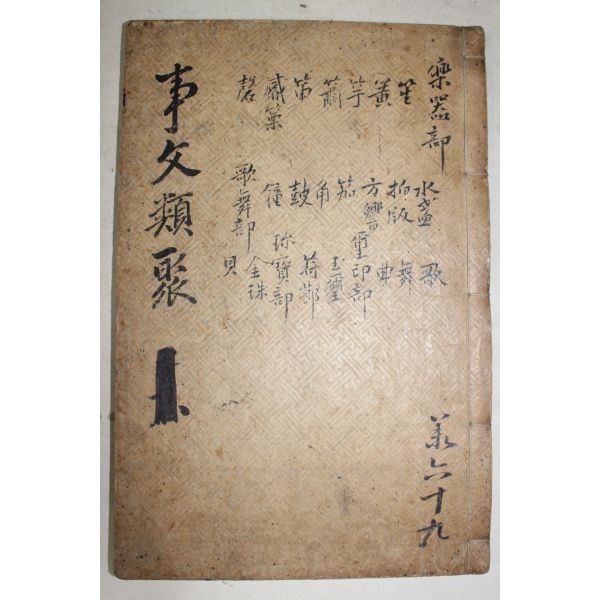 樂器部
笙 水盞 歌
簧 拍版 舞
竽 方響 曲
簫 笳 璽印部
笛 角 玉璽
篥 鼓 符節
磬 鐘 珎寶部
歌舞部 金珠
貝
事文類聚
六十九